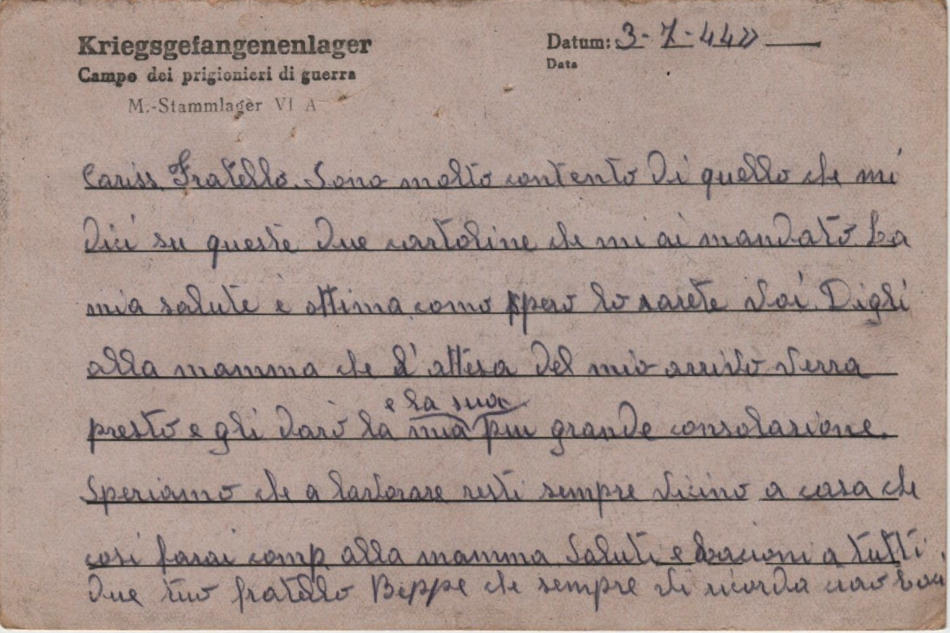 Kriegsgefangenenlager
Datum: 3-7-44
Campo dei prigionieri di guerra
Data
M.-Stammlager VI A
Cariss. Fratello. Sono molto contento di quello che mi
dici su queste due cartoline che mi ai mandato La
mia salute è ottima como spero lo sarete voi. Digli
alla mamma che l'attesa del mio arrivo verra
e la sua
presto e gli darò la mia piu grande consolazione.
Speriamo che a lavorare resti sempre vicino a casa che
cosi farai comp. alla mamma Saluti e bacioni a tutti
due tuo fratello Beppe che sempre vi ricorda ciao